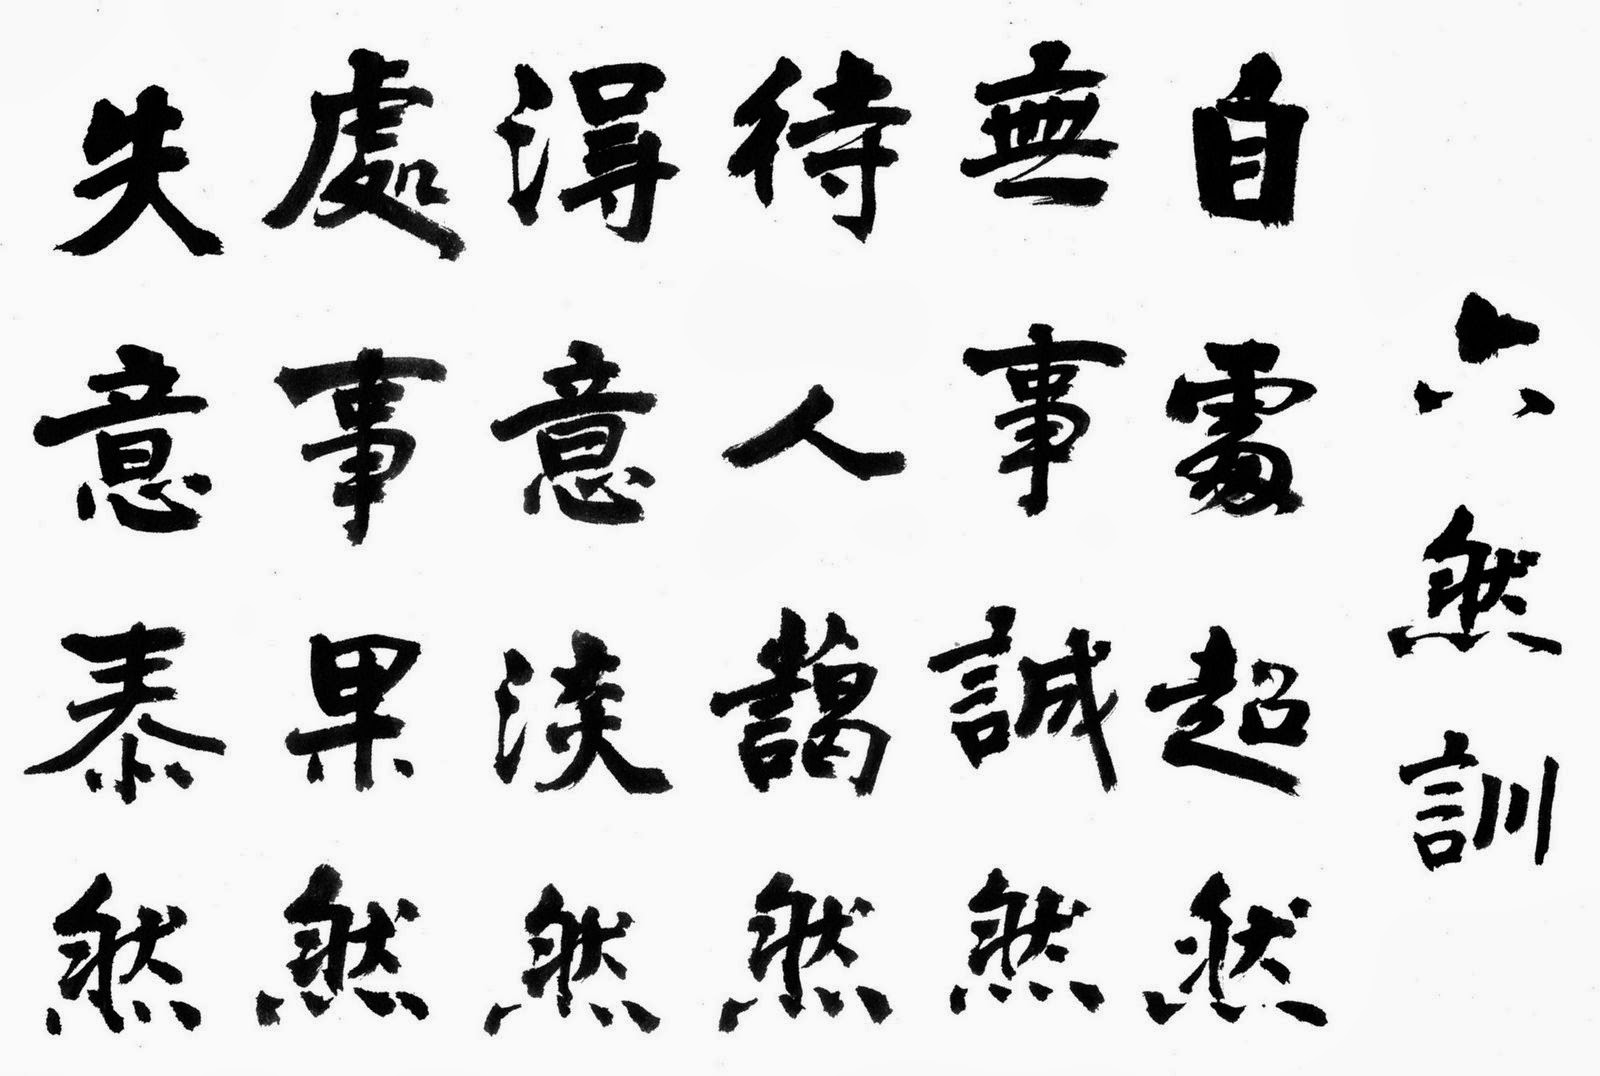 六然訓
自處超然
無事誠然
待人藹然
淂意淡然
處事果然
失意泰然